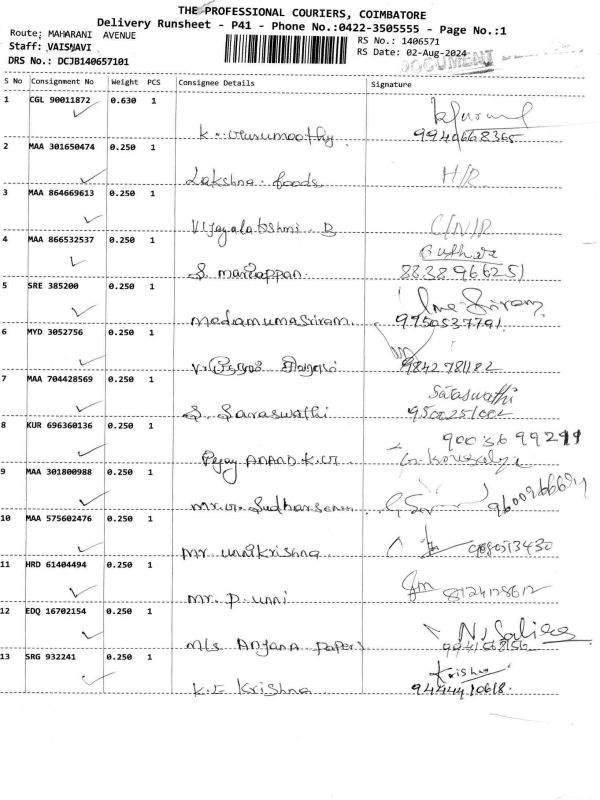 THE PROFESSIONAL COURIERS, COIMBATORE
Delivery Runsheet - P41 - Phone No.:0422-3505555 - Page No.:1
Route: MAHARANI AVENUE
RS No.: 1406571
Staff: VAISNAVI
RS Date: 02-Aug-2024
DOCUMENT
DRS No.: DCJB140657101
S No Consignment No Weight PCS Consignee Details Signature
1 CGL 90011872 0.630 1
9940668365
2 MAA 301650474 0.250 1
Lakshna. foods H/R
3 MAA 864669613 0.250 1
Vijayalakshmi. B C/N/R
4 MAA 866532537 0.250 1
S. Mariappan. 8838966251
5 SRE 385200 0.250 1
madamumasriram. Uma Sriram
9750537791
6 MYD 3052756 0.250 1
9842781182
7 MAA 704428569 0.250 1
Saraswathi
S. Saraswathi
8 KUR 696360136 0.250 1
ANAND K.
9 MAA 301800988 0.250 1
Mr. Sudharsanan
10 MAA 575602476 0.250 1
Mr. unnikrishna
11 HRD 61404494 0.250 1
Mr. P. unni
12 EDQ 16702154 0.250 1
M/s Anjana Papers
13 SRG 932241 0.250 1
Krishna
K.E Krishna